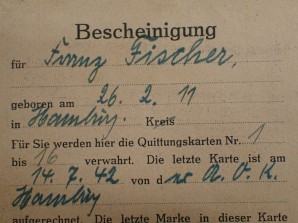 Bescheinigung
für Franz Fischer,
geboren am 26. 2. 11
in Hamburg. Kreis
Für Sie werden hier die Quittungskarten Nr. 1
bis 16 verwahrt. Die letzte Karte ist am
14. 7. 42 von der A. O. K.
Hamburg
aufgerechnet. Die letzte Marke in dieser Karte